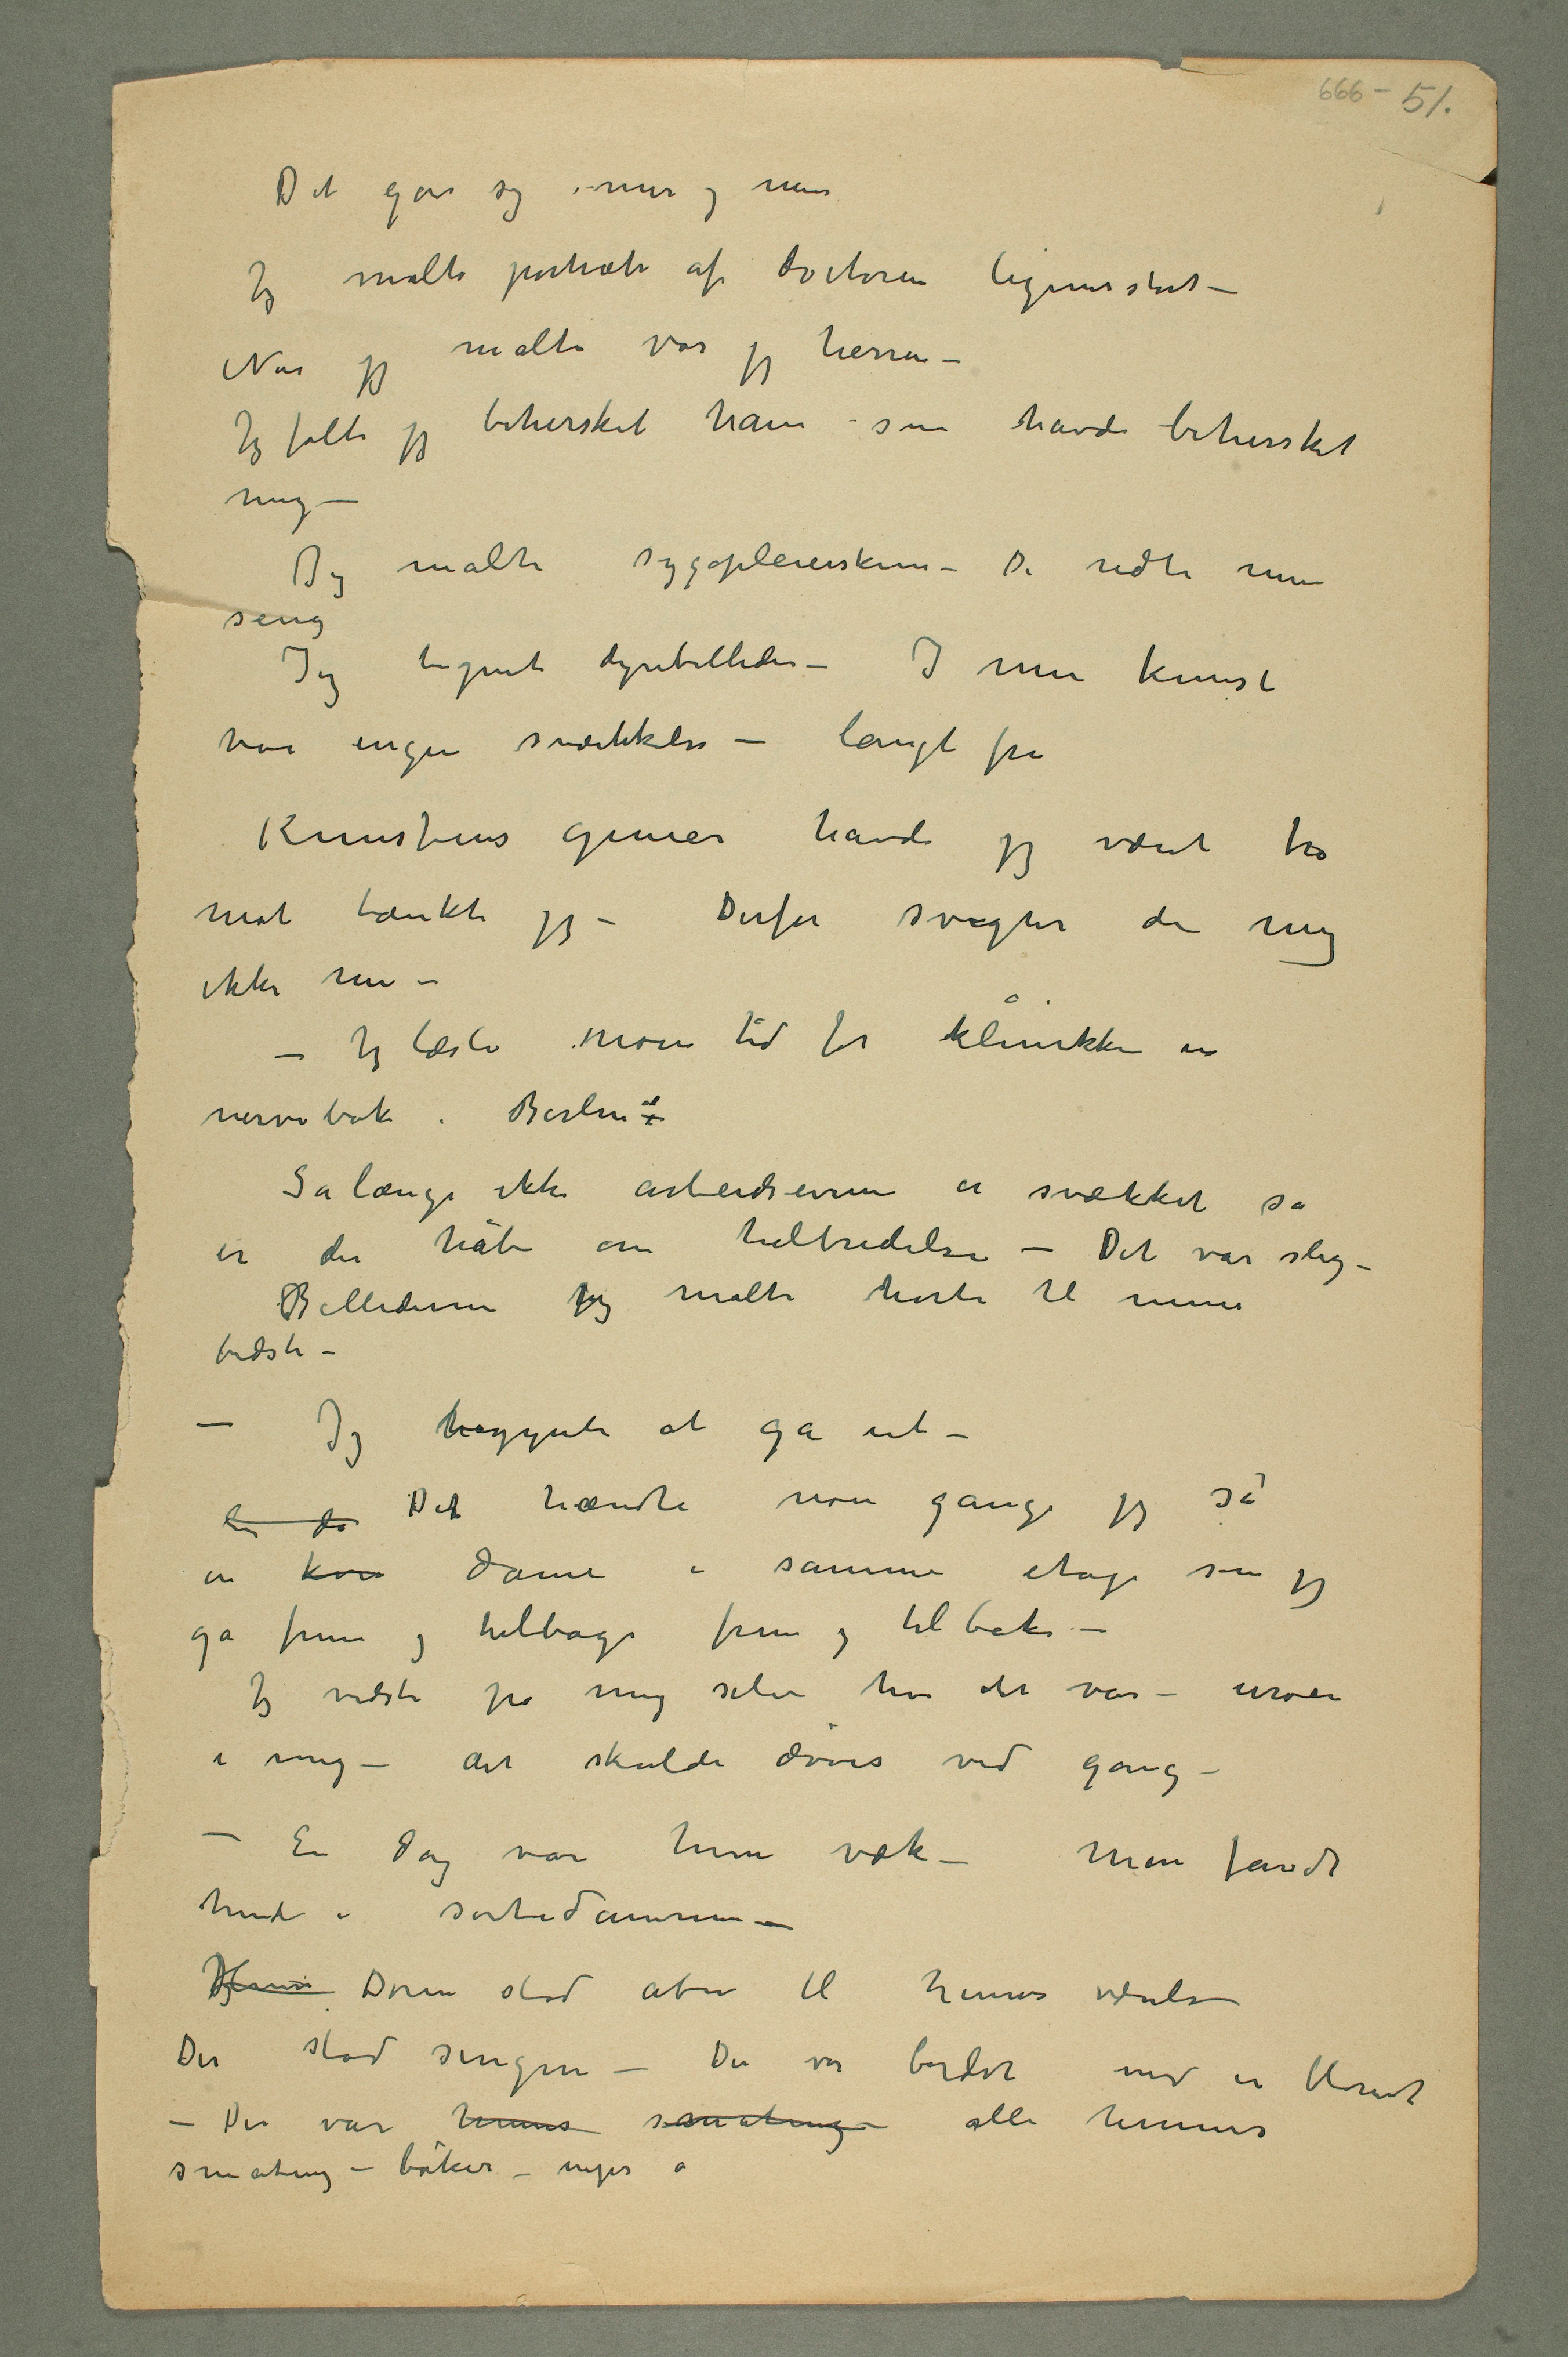 666 - 51.
Det gav sig mer og mer
Jg malte portræt af doctoren legemsstort –
Når jg malte var jg herren –
Jg følte jg behersket ham som havde behersket
mig –
Jeg malte sygepleiersken – De redte min
seng
Jeg tegnet dyrebilleder – I min kunst
var ingen svækkelse – langt fra
Kunstens genier havde jg været tro
mot tænkte jg – Derfor svigter de mig
ikke nu –
– Jg læste noen tid før klinikken en
nervebok i Berlin
Sålænge ikke arbeidsevnen er svækket så
er der håb om helbredelse – Det var slig –
Billederne jg malte hørte til mine
bedste –
– Jeg begynte at gå ut –
En da Det hændte noen gange jg så
en kvi dame i samme etage som jg
gå frem og tilbage frem og tilbake –
Jg vidste på mig selv hva det var – uroen
i mig – det skulde døves ved gang –
– En dag var hun væk – Man fandt
hende i sortedammen –
Døren stod åben til hennes værelse
Der stod sengen – Der var bordet med en blomst
– Der var hennes småting – alle hennes
småting – bøker –